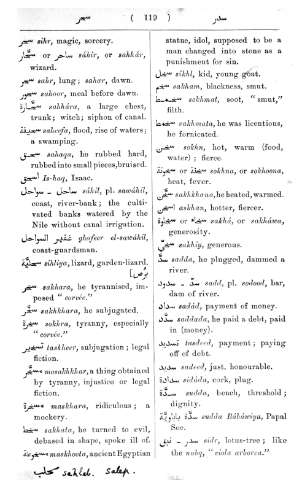 سحر ( 119 ) سدر
سحر sihr, magic, sorcery.
ساحر or سحّار sâhir, or sahhâr,
wizard.
سحر sahr, lung; sahar, dawn.
سحور sahoor, meal before dawn.
سحّارة sahhâra, a large chest,
trunk; witch; siphon of canal.
saheefa, flood, rise of waters;
a swamping.
سحق sahaqa, he rubbed hard,
rubbed into small pieces, bruised.
Is-haq, Isaac.
ساحل - سواحل sâhil, pl. sawâhil,
coast, river-bank; the culti-
vated banks watered by the
Nile without canal irrigation.
غفير السواحل ghafeer el-sawâhil,
coast-guardsman.
سحلية sihliya, lizard, garden-lizard.
سخر sakhara, he tyrannised, im-
posed "corvée."
سخّر sakhkhara, he subjugated.
سخرة sokhra, tyranny, especially
"corvée."
تسخير taskheer, subjugation; legal
fiction.
مسخّر mosakhkhar, a thing obtained
by tyranny, injustice or legal
fiction.
مسخرة maskhara, ridiculous; a
mockery.
سخط sakhata, he turned to evil,
debased in shape, spoke ill of.
maskhoota, ancient Egyptian
سحلب sahleb. salep.
statue, idol, supposed to be a
man changed into stone as a
punishment for sin.
سخل sikhl, kid, young goat.
سخم sakham, blackness, smut.
sokhmat, soot, "smut,"
filth.
sakhmata, he was licentious,
he fornicated.
سخن sokhn, hot, warm (food,
water); fierce.
سخنة or سخونة sokhna, or sokhoona,
heat, fever.
سخّن sakhkhana, he heated, warmed.
اسخن askhan, hotter, fiercer.
سخاء or سخاوة sakhâ, or sakhâwa,
generosity.
سخي sakhiy, generous.
سدّ sadda, he plugged, dammed a
river.
سدّ - سدود sadd, pl. sodood, bar,
dam of river.
سداد sadâd, payment of money.
سدّد saddada, he paid a debt, paid
in (money).
تسديد tasdeed, payment; paying
off of debt.
سديد sadeed, just, honourable.
سدادة sidâda, cork, plug.
سدّة sudda, bench, threshold;
dignity.
سدّة بابوية sudda Bâbâwiya, Papal
See.
سدر - نبق sidr, lotus-tree; like
the nabq, "viola arborea."